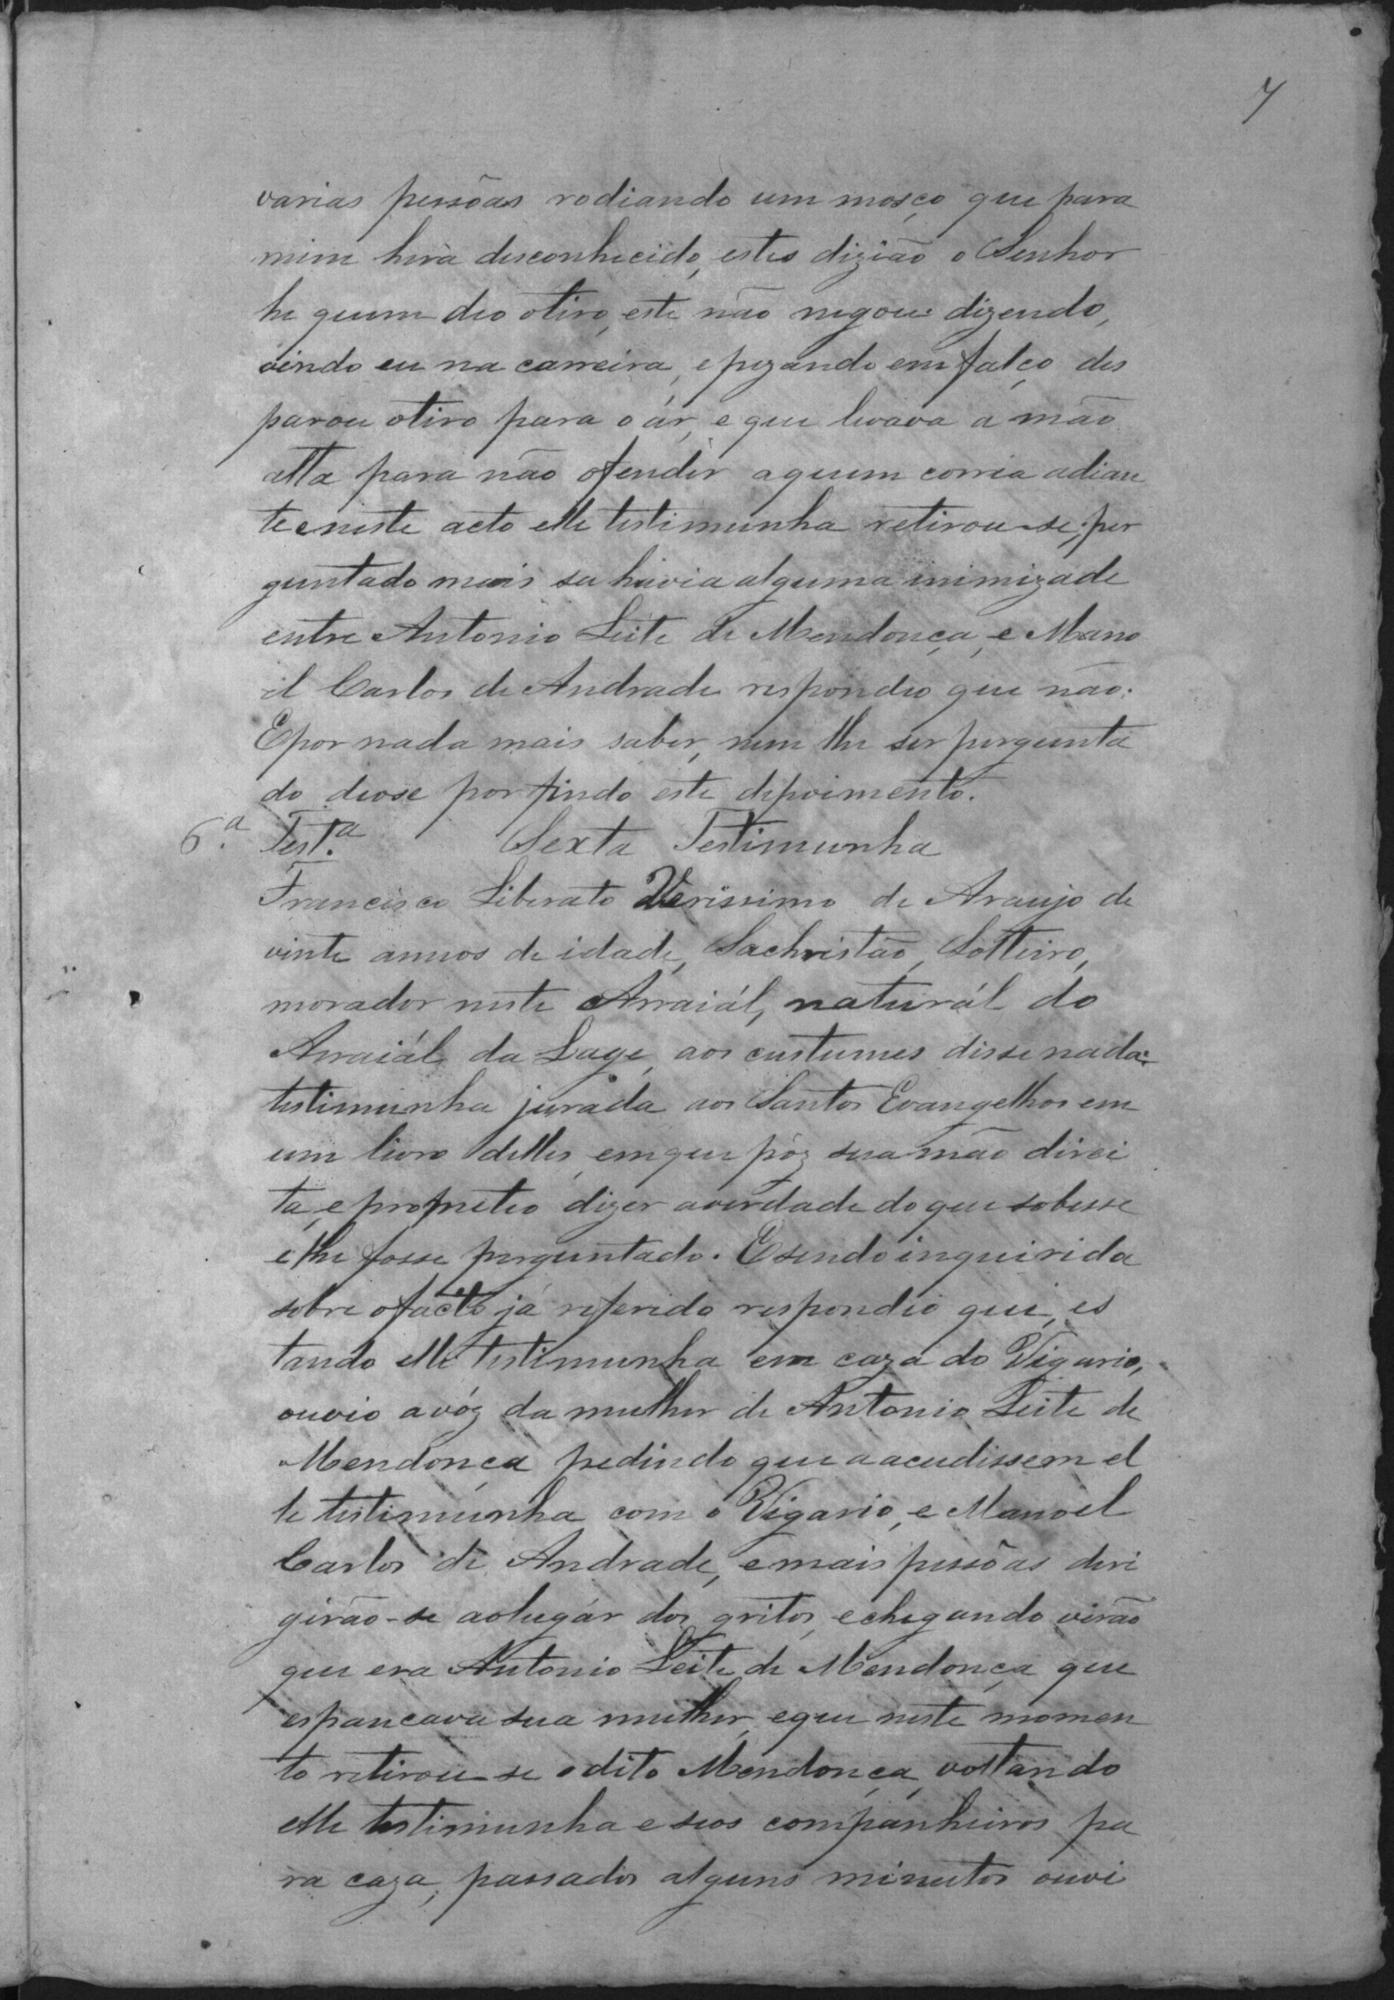 7
varias pessôas rodiando um mosço que para
mim hera desconhecido, estes dizião o Senhor
he quem deo otiro, este não negou: dizendo,
vindo eu na carreira, epizando em falço dis
parou otiro para o ár, e que levava a mão
alta para não ofender aquem corria adian
te eneste acto elle testimunha retirou-se, per
guntado mais se havia alguma inimizade
entre Antonio Leite de Mendonça, e Mano
el Carlos de Andrade respondeo que não.
Epor nada mais saber, nem lhe ser pergunta
do deose por findo este depoimento.
6.ª Test.ª Sexta Testimunha
Francisco Liberato Verissimo de Araujo de
vinte annos de idade, Sachristão, Solteiro,
morador neste Arraiál, naturál do
Arraiál da Lage, aos custumes disse nada:
testimunha jurada aos Santos Evangelhos em
um livro delles, emque pôz sua mão direi
ta, e prometeo dizer averdade do que sobesse
e lhe fosse perguntado. Esendo inquirida
sobre ofacto já referido respondeo que, es
tando elle testimunha em caza do Vigario,
ouvio avóz da mulher de Antonio Leite de
Mendonça pedindo que a acudissem el
le testimunha com o Vigario, e Manoel
Carlos de Andrade, emais pessôas deri
girão-se aolugár dos gritos, echegando virão
que era Antonio Leite de Mendonça que
espancava sua mulher, eque neste momen
to retirou-se odito Mendonça, voltando
elle testimunha e seos companheiros pa
ra caza, passados alguns minutos ouvi